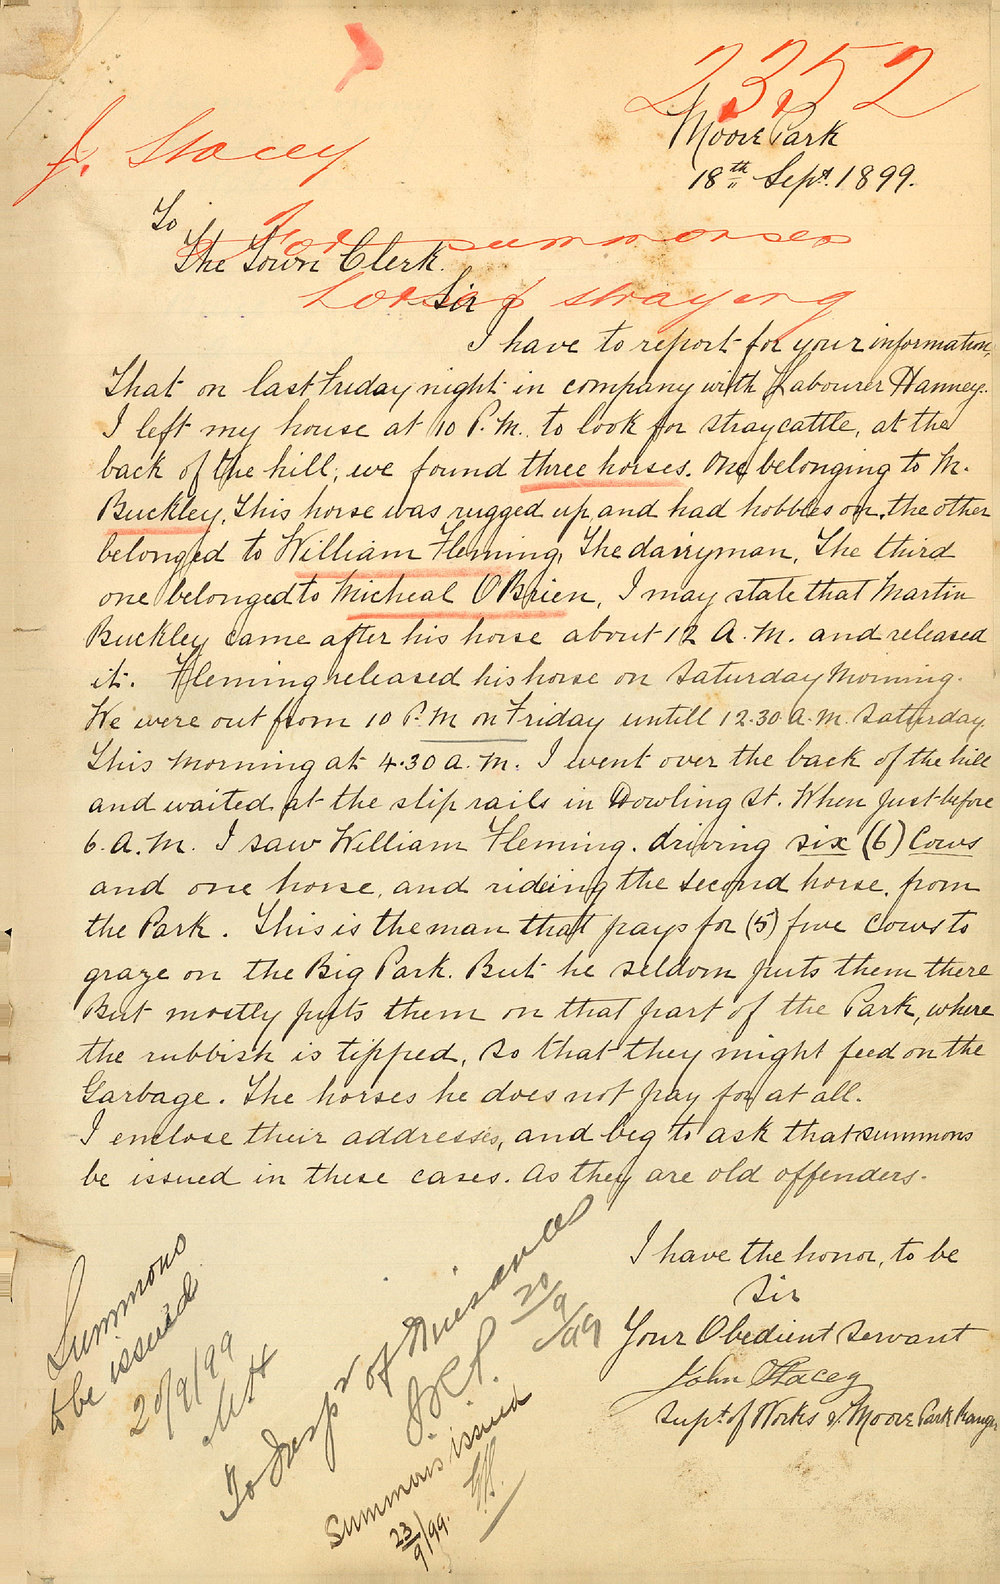 2352
Moore Park
18th Sept. 1899.
J. Stacey
To
For summonses
The Town Clerk.
horses straying
Sir
I have to report for your information,
That on last Friday night in company with Labourer Hanney.
I left my house at 10 P.M. to look for stray cattle, at the
back of the hill, we found three horses. One belonging to M.
Buckley, This horse was rugged up, and had hobbles on, the other
belonged to William Fleming, The dairyman, The third
one belonged to Micheal O'Brien, I may state that Martin
Buckley came after his horse about 12 A.M. and released
it. Fleming released his horse on Saturday Morning.
We were out from 10 P.M on Friday untill 12.30 A.M. Saturday
This Morning at 4.30 a.m. I went over the back of the hill
and waited at the slip rails in Dowling St. When just before
6. A.M. I saw William Fleming. driving six (6) Cows
and one horse, and riding the second horse, from
the Park. This is the man that pays for (5) five Cows to
graze on the Big Park. But he seldom puts them there
But mostly puts them on that part of the Park, where
the rubbish is tipped, so that they might feed on the
Garbage. The horses he does not pay for at all.
I enclose their addresses, and beg to ask that summons
be issued in these cases. As they are old offenders.
I have the honor, to be
Sir
Your Obedient Servant
John Stacey
Supt. of Works & Moore Park Ranger
Summons
to be issued
20/9/99
To Inspr of Nuisances
20/9/99
Summons issued
23/9/99.